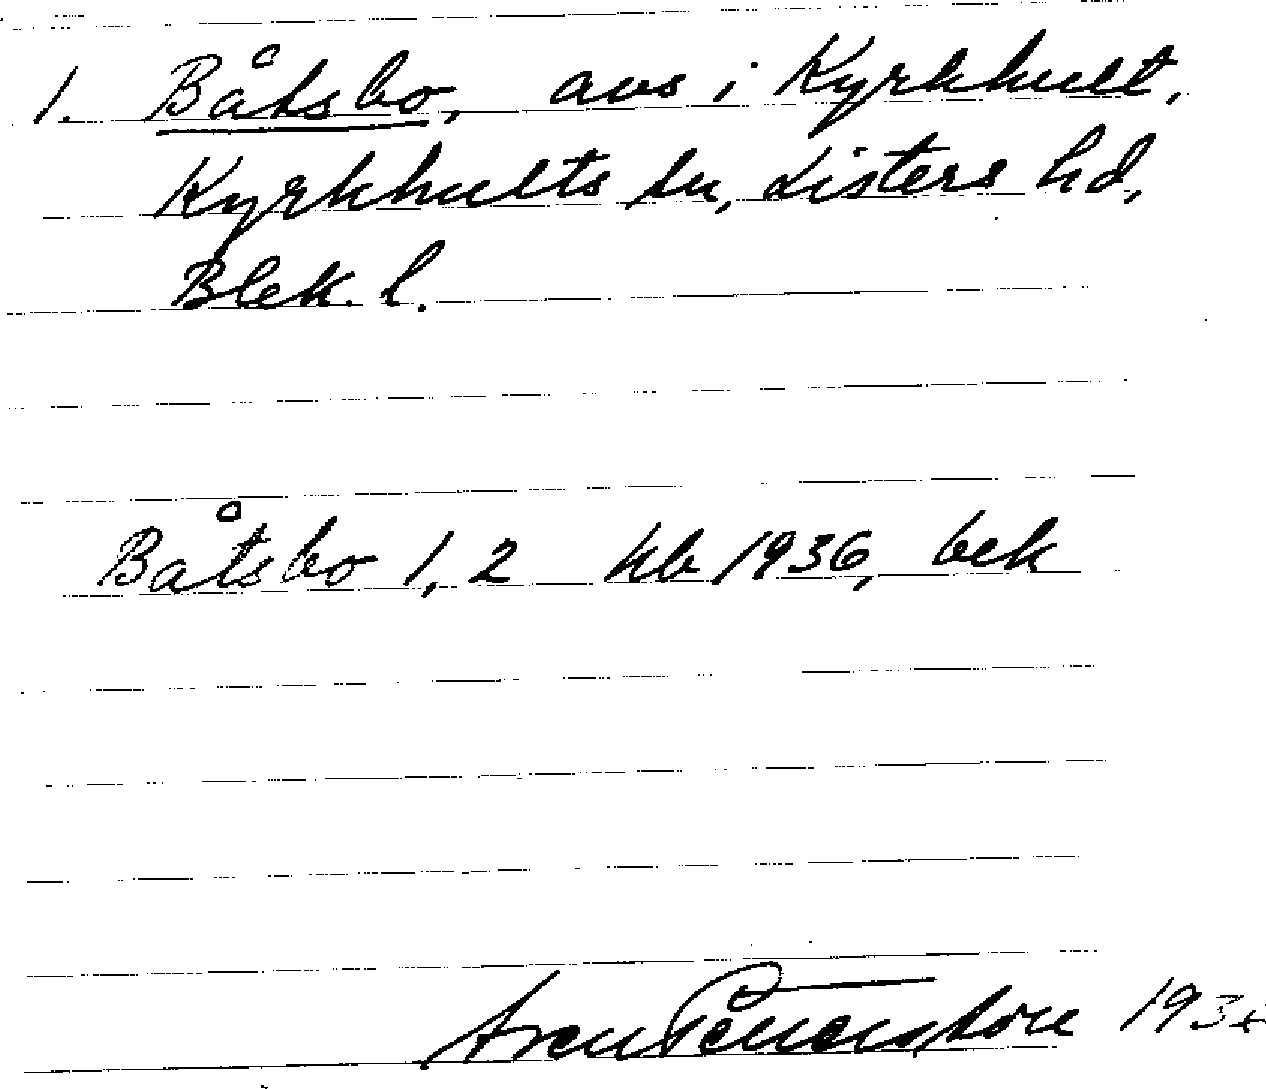 1. Båtsbo, avs i Kyrkhult,
Kyrkhults sn, Listers hd,
Blek. l.
Båtsbo 1, 2 kb 1936, bek
193